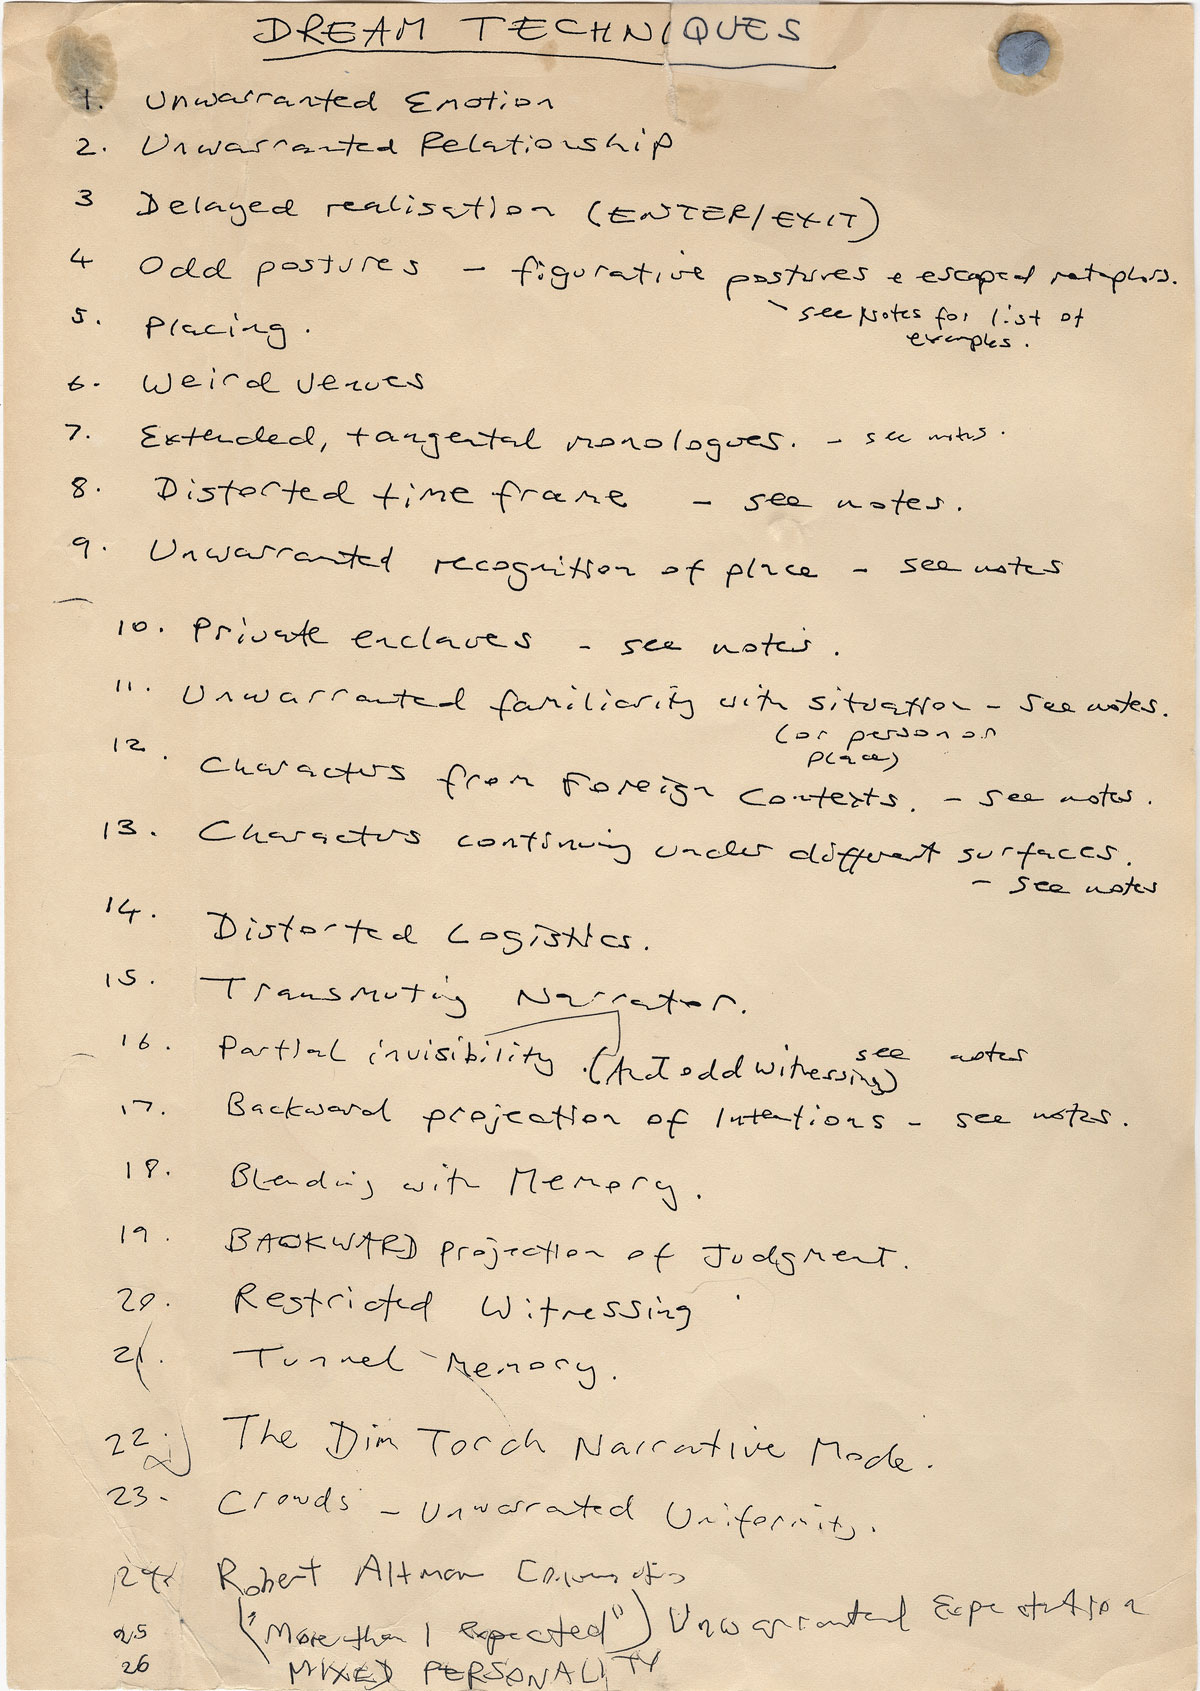 DREAM TECHNIQUES
1. Unwarranted Emotion
2. Unwarranted Relationship
3 Delayed realisation (ENTER/EXIT)
4 Odd postures - figurative postures & escaped metaphors.
- see Notes for list of
examples.
5. Placing.
6. Weird Venues
7. Extended, tangental monologues. - see notes.
8. Distorted time frame - see notes.
9. Unwarranted recognition of place - see notes
10. Private enclaves - see notes.
11. Unwarranted familiarity with situation - See notes.
(or person or
place)
12. Characters from Foreign Contexts. - See notes.
13. Characters continuing under different surfaces.
- See notes
14. Distorted Logistics.
15. Transmuting Narrator.
16. Partial invisibility. (And odd witnessing) see notes
17. Backward projection of Intentions - see notes.
18. Blending with Memory.
19. BACKWARD projection of Judgment.
20. Restricted Witnessing
21. Tunnel Memory.
22. The Dim Torch Narrative Mode.
23. Crowds - Unwarranted Uniformity.
24. Robert Altman
25 ("More than 1 Expected") Unwarranted Expectation
26 MIXED PERSONALITY